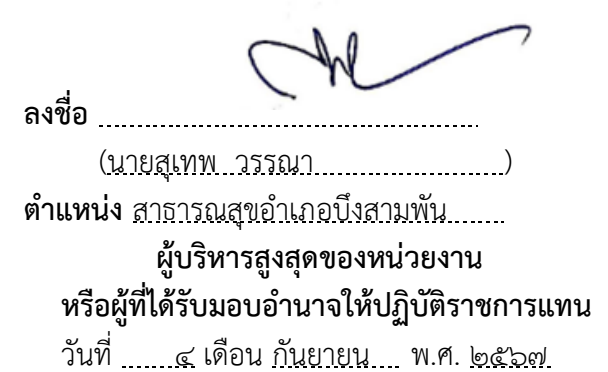 ลงชื่อ ........................................
(นายสุเทพ วรรณา....................)
ตำแหน่ง สาธารณสุขอำเภอบึงสามพัน......
ผู้บริหารสูงสุดของหน่วยงาน
หรือผู้ที่ได้รับมอบอำนาจให้ปฏิบัติราชการแทน
วันที่ ......๔ เดือน กันยายน.... พ.ศ. ๒๕๖๗